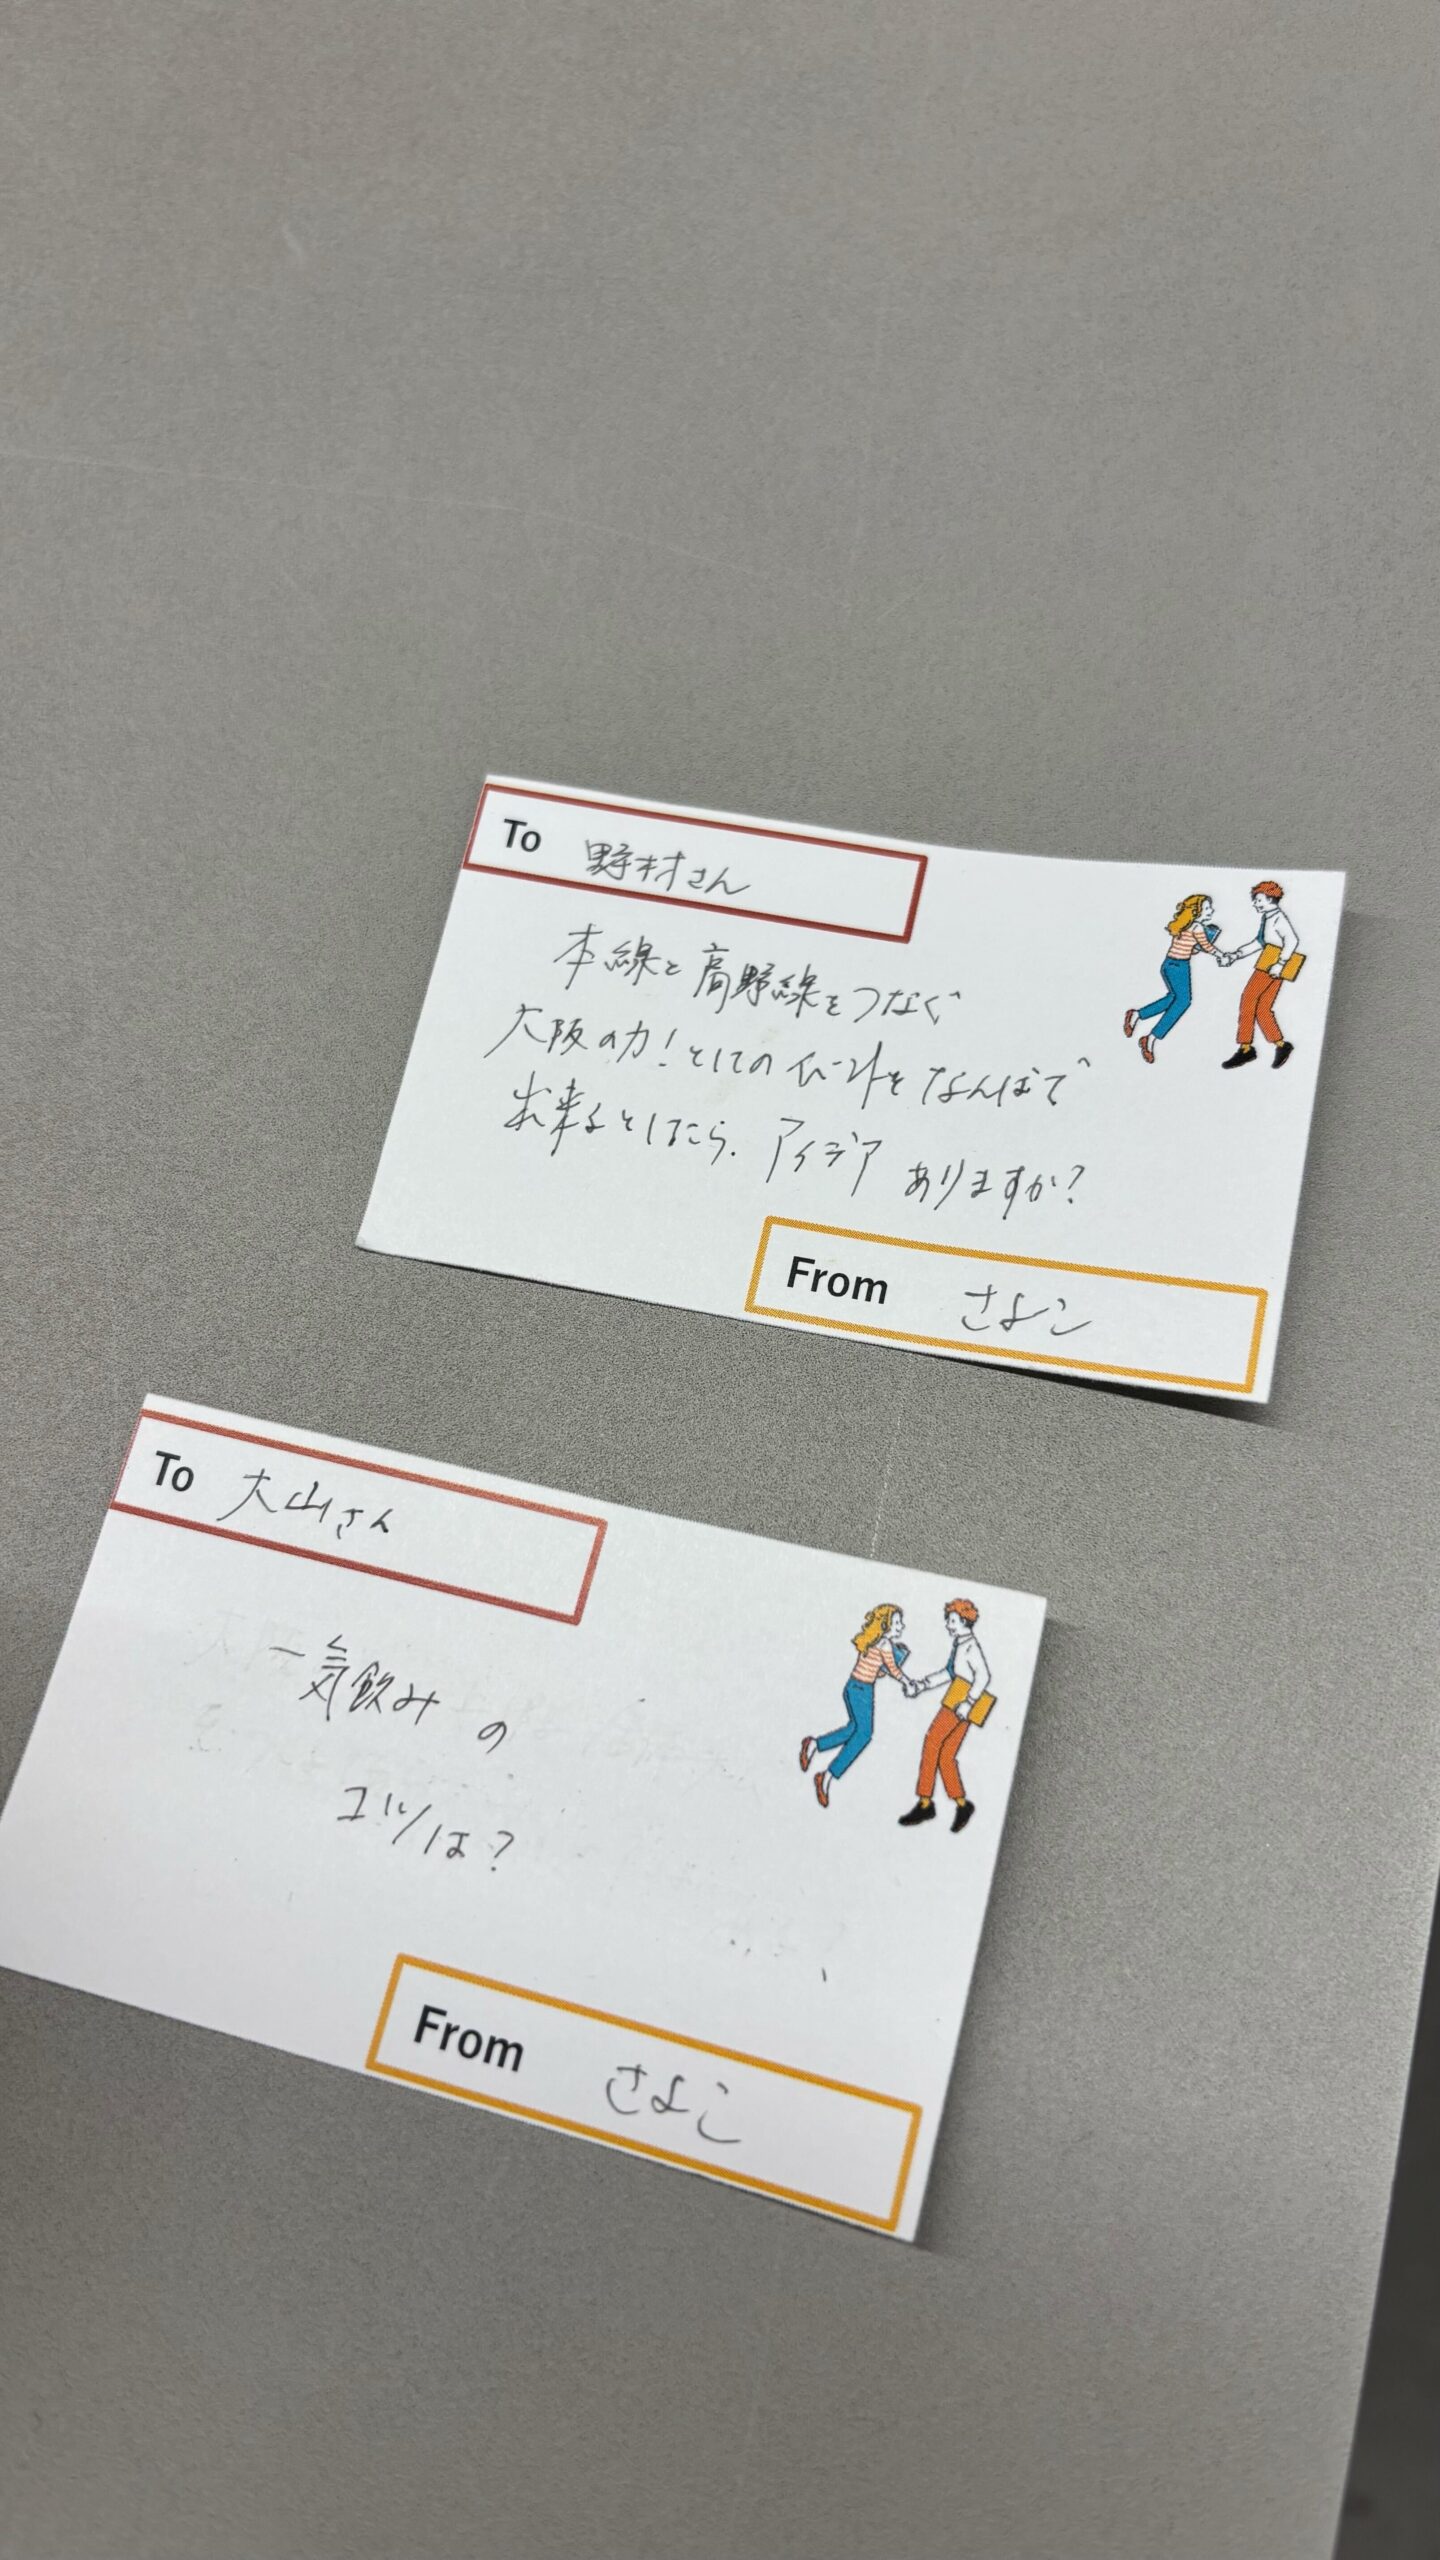 To 野村さん
本線と高野線をつなぐ
大阪の力！としてのイベントをなんばで
出来るとしたら、アイデアありますか？
From さよこ
To 大山さん
一気飲みの
コツは？
From さよこ